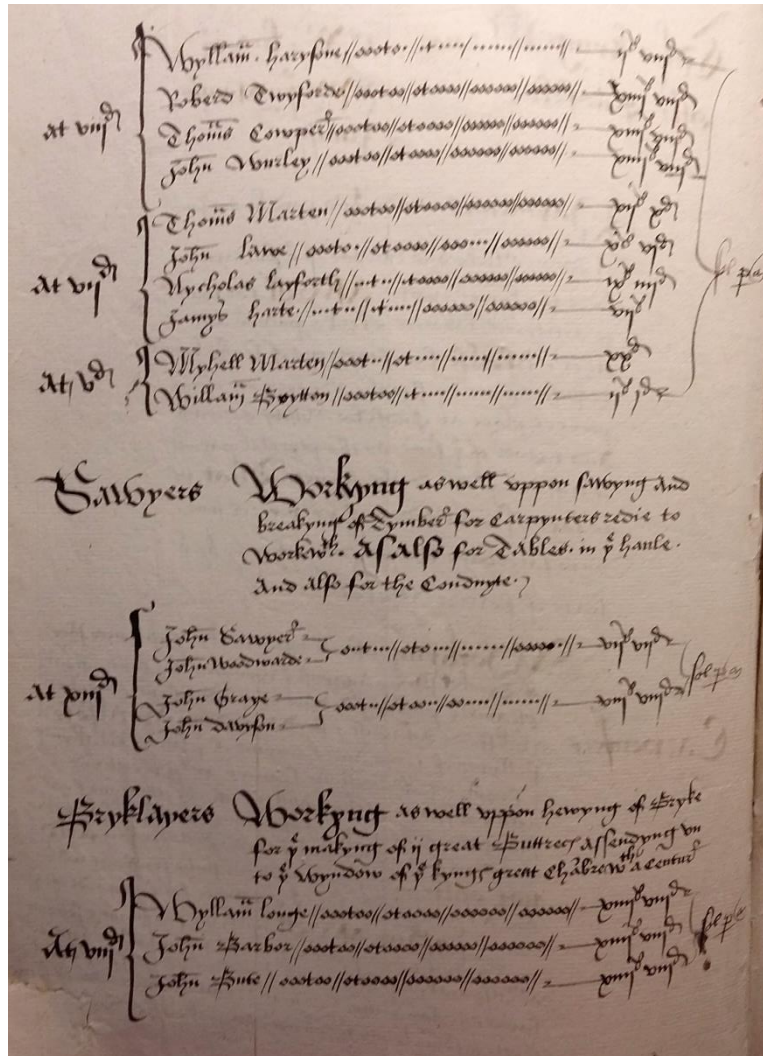 at viijd
Wyllam̃ . haryson //oooto··//t····/······//·····// ijs viijd
Roberd Twyforde //oootoo//otoooo//oooooo//oooooo// xiiijs viijd
Thom̃s Cowper //oootoo//otoooo//oooooo//oooooo// xiiijs viijd
John Wurley //oootoo//otoooo//oooooo//oooooo// xiiijs viijd
at vijd
Thom̃s Marten //oootoo//otoooo//oooooo//oooooo// xijs xd
John Lawe //oooto·//otoooo//ooo···//oooooo// xs vjd
Nycholas Layforth //··t··//otoooo//oooooo//oooooo// ixs iiijd
Jamys harte //···t··//t····//oooooo//oooooo// vijs
At vd
Myhell Marten //ooot··//ot····//······//······// xxd
Willam̃ Brytton //oootoo//t····//······//······// ijs jd
Sawyers Workyng aswell vppon sawyng and
breakyng of Tymber for Carpynters redie to
Workewth . As also for Tables . in ye haule .
And also for the Conduyte .
at xvjd
John Sawyer
John Woodwarde
John Graye
John Davyson
Bryklayers Workyng aswell vppon hewyng of Bryke
for ye makyng of ij great Buttres Assendyng vn
to ye Wyndow of ye kyngs great Chãbre wth a Centur
At viijd
Wyllam̃ longe //oootoo//otoooo//oooooo//oooooo// xiiijs viijd
John Barbor //oootoo//otoooo//oooooo//oooooo// xiiijs viijd
John Bute //oootoo//otoooo//oooooo//oooooo// xiiijs viijd